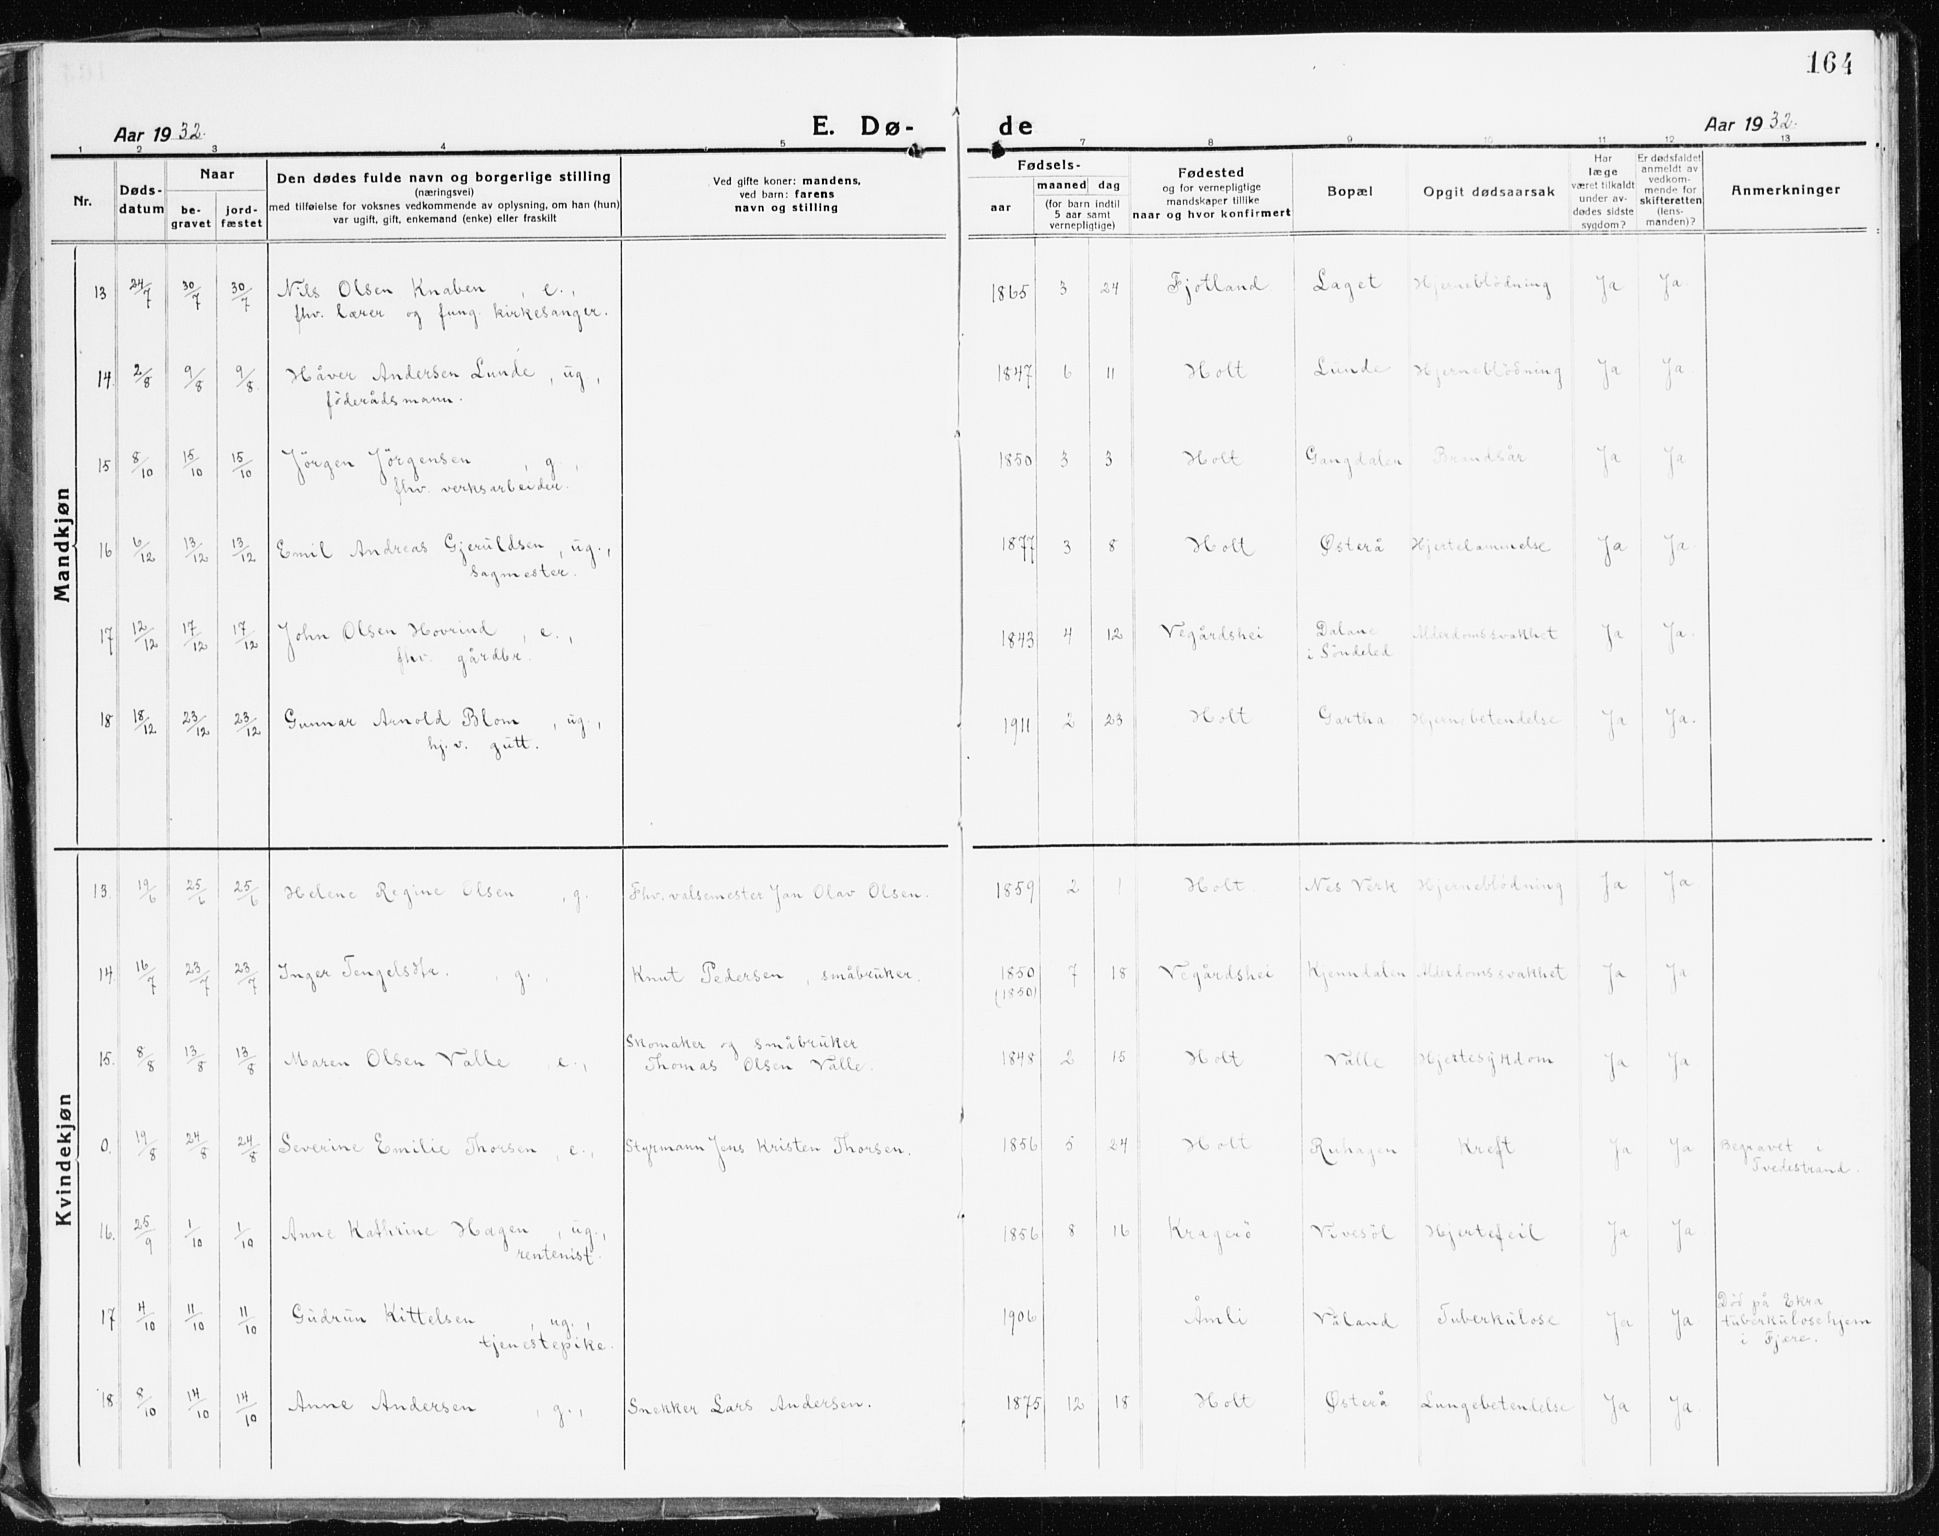 164
Aar 1932.
E. Dø-
de
Aar 1932.
1 2 3 4 5 7 8 9 10 11 12 13
Nr.
Døds-
datum
Naar
be-
gravet
jord-
fæstet
Den dødes fulde navn og borgerlige stilling
(næringsvei)
med tilføielse for voksnes vedkommende av oplysning, om han (hun)
var ugift, gift, enkemand (enke) eller fraskilt
Ved gifte koner: mandens,
ved barn: farens
navn og stilling
Fødsels-
aar
maaned dag
(for barn indtil
5 aar samt
vernepligtige)
Fødested
og for vernepligtige
mandskaper tillike
naar og hvor konfirmert
Bopæl
Opgit dødsaarsak
Har
læge
været tilkaldt
under av-
dødes sidste
sygdom?
Er dødsfaldet
anmeldt av
vedkom-
mende for
skifteretten
(lens-
manden)?
Anmerkninger
Mandkjøn
13 24/7 30/7 30/7 Nils Olsen Knaben, e., 1865 3 24 Fjotland Laget Hjerneblödning Ja Ja.
fhv. lærer og fung. kirkesanger.
14. 2/8 9/8 9/8. Håver Andersen Lunde, ug, 1847 6 11 Holt Lunde Hjerneblödning Ja Ja.
föderådsmann.
15 8/10 15/10 15/10 Jörgen Jörgensen, g., 1850 3 3 Holt Gangdalen Brandsår Ja Ja
fhv. verksarbeider.
16 6/12 13/12 13/12 Emil Andreas Gjeruldsen, ug., 1877 3 8 Holt Østerå Hjertelammelse Ja Ja.
sagmester.
17 12/12 17/12 17/12 John Olsen Hovrind, e., 1843 4 12 Vegårdshei Dalane Alderdomssvakhet Ja Ja.
fhv. gårdbr. i Söndeled
18 18/12 23/12 23/12 Gunnar Arnold Blom, ug., 1911 2 23 Holt Gartha Hjernebetendelse Ja Ja.
hj.v. gutt.
Kvindekjøn
13. 19/6 25/6 25/6 Helene Regine Olsen, g. Fhv. valsemester Jan Olav Olsen. 1859 2 1 Holt. Nes Verk Hjerneblödning Ja Ja
14. 16/7 23/7 23/7 Inger Tengelsdtr., g., Knut Pedersen, småbruker. 1850 7 18 Vegårdshei Kjenndalen Alderdomssvakhet Ja Ja
(1850)
15. 8/8 13/8 13/8 Maren Olsen Valle e., Skomaker og småbruker
Thomas Olsen Valle. 1848 2 15 Holt Valle Hjertesykdom Ja Ja
0. 19/8 24/8 24/8 Severine Emilie Thorsen, e., Styrmann Jens Kristen Thorsen. 1856 5 24 Holt Ruhagen Kreft Ja Ja Begravet i
Tvedestrand.
16. 25/9 1/10 1/10 Anne Kathrine Hagen, ug., 1856 8 16 Kragerö Vivesöl Hjertefeil Ja Ja
rentenist.
17 4/10 11/10 11/10 Gudrun Kittelsen, ug., 1906 Åmli Våland Tuberkulose Ja Ja.
tjenestepike.
Död på Ekra
tuberkulosehjem
i Fjære.
18 8/10 14/10 14/10 Anne Andersen, g., Snekker Lars Andersen. 1875 12 18 Holt Østerå Lungebetendelse Ja Ja.